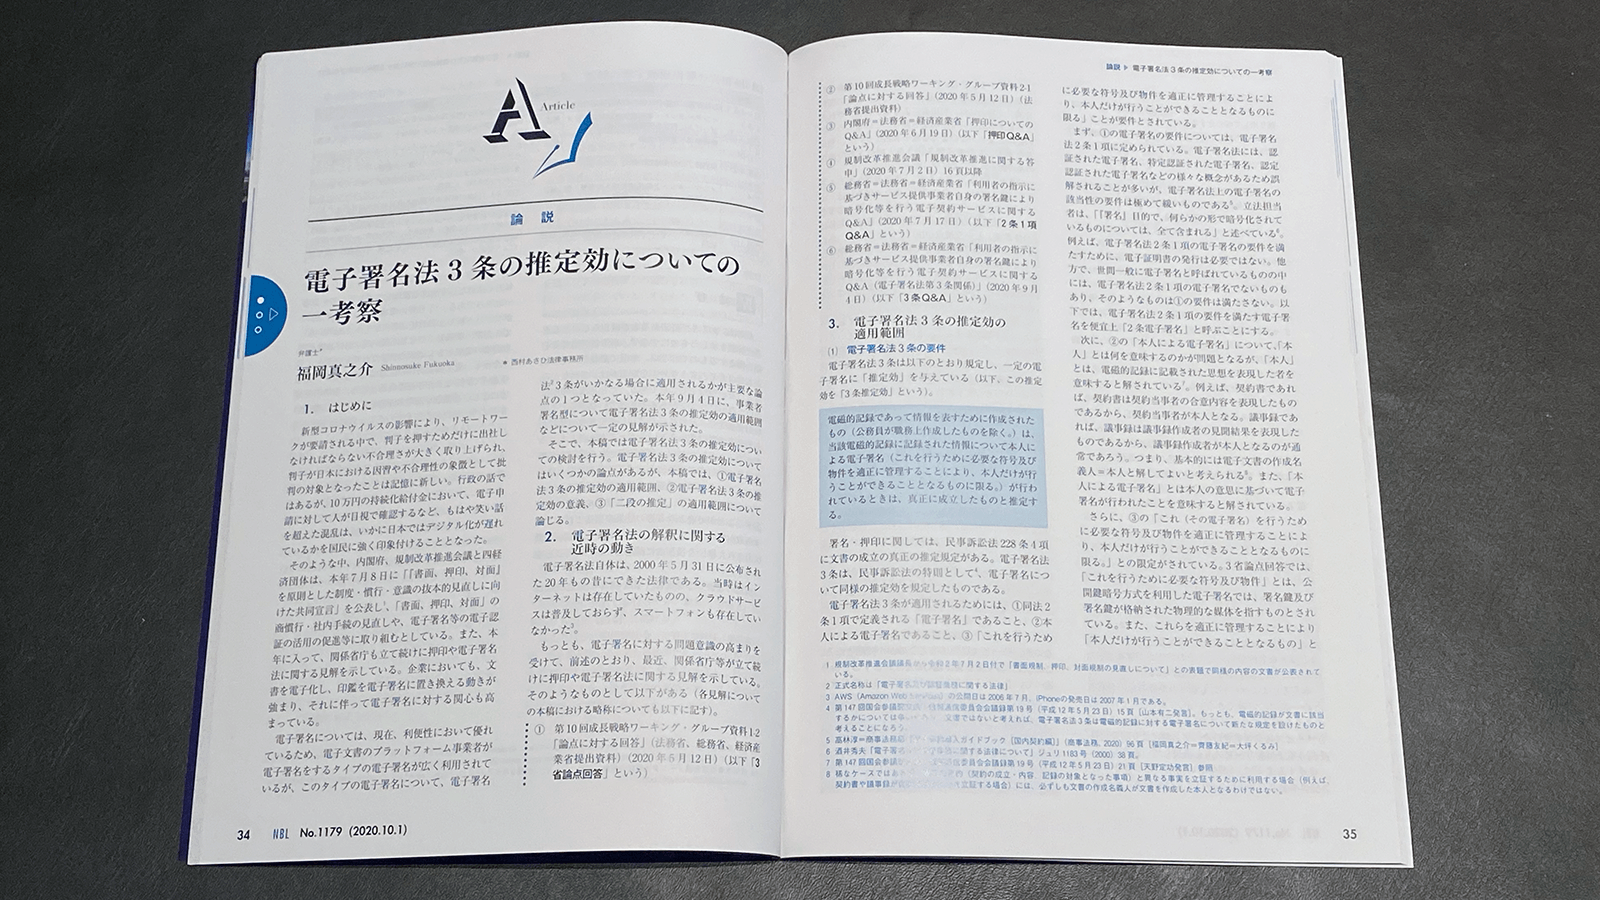 A Article
論 説
電子署名法3条の推定効についての
一考察
弁護士*
福岡真之介 Shinnosuke Fukuoka
* 西村あさひ法律事務所
1. はじめに
新型コロナウイルスの影響により、リモートワー
クが要請される中で、判子を押すためだけに出社し
なければならない不合理さが大きく取り上げられ、
判子が日本における因習や不合理性の象徴として批
判の対象となったことは記憶に新しい。行政の話で
はあるが、10万円の持続化給付金において、電子申
請に対して人が目視で確認するなど、もはや笑い話
を超えた混乱は、いかに日本ではデジタル化が遅れ
ているかを国民に強く印象付けることとなった。
そのような中、内閣府、規制改革推進会議と四経
済団体は、本年7月8日に「「書面、押印、対面」
を原則とした制度・慣行・意識の抜本的見直しに向
けた共同宣言」を公表し1、「書面、押印、対面」の
商慣行・社内手続の見直しや、電子署名等の電子認
証の活用の促進等に取り組むとしている。また、本
年に入って、関係省庁も立て続けに押印や電子署名
法に関する見解を示している。企業においても、文
書を電子化し、印鑑を電子署名に置き換える動きが
強まり、それに伴って電子署名に対する関心も高
まっている。
電子署名については、現在、利便性において優れ
ているため、電子文書のプラットフォーム事業者が
電子署名をするタイプの電子署名が広く利用されて
いるが、このタイプの電子署名について、電子署名
法2 3条がいかなる場合に適用されるかが主要な論
点の1つとなっていた。本年9月4日に、事業者
署名型について電子署名法3条の推定効の適用範囲
などについて一定の見解が示された。
そこで、本稿では電子署名法3条の推定効につい
ての検討を行う。電子署名法3条の推定効について
はいくつかの論点があるが、本稿では、①電子署名
法3条の推定効の適用範囲、②電子署名法3条の推
定効の意義、③「二段の推定」の適用範囲について
論じる。
2. 電子署名法の解釈に関する
近時の動き
電子署名法自体は、2000年5月31日に公布され
た20年も昔にできた法律である。当時はインター
ネットは存在していたものの、クラウドサービ
スは普及しておらず、スマートフォンも存在してい
なかった3。
もっとも、電子署名に対する問題意識の高まりを
受けて、前述のとおり、最近、関係省庁等が立て続
けに押印や電子署名法に関する見解を示している。
そのようなものとして以下がある(各見解について
の本稿における略称についても以下に記す)。
① 第10回成長戦略ワーキング・グループ資料1-2
「論点に対する回答」(法務省、総務省、経済産
業省提出資料)(2020年5月12日)(以下「3
省論点回答」という)
34 NBL No.1179 (2020.10.1)
論説▶電子署名法3条の推定効についての一考察
② 第10回成長戦略ワーキング・グループ資料2-1
「論点に対する回答」(2020年5月12日)(法
務省提出資料)
③ 内閣府=法務省=経済産業省「押印についての
Q&A」(2020年6月19日)(以下「押印Q&A」
という)
④ 規制改革推進会議「規制改革推進に関する答
申」(2020年7月2日)16頁以降
⑤ 総務省=法務省=経済産業省「利用者の指示に
基づきサービス提供事業者自身の署名鍵により
暗号化等を行う電子契約サービスに関する
Q&A」(2020年7月17日)(以下「2条1項
Q&A」という)
⑥ 総務省=法務省=経済産業省「利用者の指示に
基づきサービス提供事業者自身の署名鍵により
暗号化等を行う電子契約サービスに関する
Q&A(電子署名法第3条関係)」(2020年9月
4日)(以下「3条Q&A」という)
3. 電子署名法3条の推定効の
適用範囲
(1) 電子署名法3条の要件
電子署名法3条は以下のとおり規定し、一定の電
子署名に「推定効」を与えている(以下、この推定
効を「3条推定効」という)。
電磁的記録であって情報を表すために作成された
もの(公務員が職務上作成したものを除く。)は、
当該電磁的記録に記録された情報について本人に
よる電子署名(これを行うために必要な符号及び
物件を適正に管理することにより、本人だけが行
うことができることとなるものに限る。)が行わ
れているときは、真正に成立したものと推定す
る。
署名・押印に関しては、民事訴訟法228条4項
に文書の成立の真正の推定規定がある。電子署名法
3条は、民事訴訟法の特則として4、電子署名につい
て同様の推定効を規定したものである。
電子署名法3条が適用されるためには、①同法2
条1項で定義される「電子署名」であること、②本
人による電子署名であること、③「これを行うため
に必要な符号及び物件を適正に管理することによ
り、本人だけが行うことができることとなるものに
限る」ことが要件とされている。
まず、①の電子署名の要件については、電子署名
法2条1項に定められている。電子署名法には、認
証された電子署名、特定認証された電子署名、認定
認証された電子署名などの様々な概念があるため誤
解されることが多いが、電子署名法上の電子署名の
該当性の要件は極めて緩いものである5。立法担当
者は、「「署名」目的で、何らかの形で暗号化されて
いるものについては、全て含まれる」と述べている6。
例えば、電子署名法2条1項の電子署名の要件を満
たすために、電子証明書の発行は必要ではない。他
方で、世間一般に電子署名と呼ばれているものの中
には、電子署名法2条1項の電子署名でないものも
あり、そのようなものは①の要件は満たさない。以
下では、電子署名法2条1項の要件を満たす電子署
名を便宜上「2条電子署名」と呼ぶことにする。
次に、②の「本人による電子署名」について、「本
人」とは何を意味するのかが問題となるが、「本人」
とは、電磁的記録に記載された思想を表現した者を
意味すると解されている7。例えば、契約書であれ
ば、契約書は契約当事者の合意内容を表現したもの
であるから、契約当事者が本人となる。議事録であ
れば、議事録は議事録作成者の見聞結果を表現した
ものであるから、議事録作成者が本人となるのが通
常であろう。つまり、基本的には電子文書の作成名
義人=本人と解してよいと考えられる8。また、「本
人による電子署名」とは本人の意思に基づいて電子
署名が行われたことを意味すると解されている。
さらに、③の「これ(その電子署名)を行うため
に必要な符号及び物件を適正に管理することによ
り、本人だけが行うことができることとなるものに
限る。」との限定がされている。3省論点回答では、
「これを行うために必要な符号及び物件」とは、公
開鍵暗号方式を利用した電子署名では、署名鍵及び
署名鍵が格納された物理的な媒体を指すものとされ
ている。また、これらを適正に管理することにより
「本人だけが行うことができることとなるもの」と
1 規制改革推進会議議長から令和2年7月2日付で「書面規制、押印、対面規制の見直しについて」との表題で同様の内容の文書が公表されて
いる。
2 正式名称は「電子署名及び認証業務に関する法律」
3 AWS(Amazon Web Services)の公開日は2006年7月、iPhoneの発売日は2007年1月である。
4 第147回国会参議院 委員会会議録第19号(平成12年5月23日)15頁[山本有二発言]。もっとも、電磁的記録が文書に該当
するかについては 文書ではないと考えれば、電子署名法3条は電磁的記録に対する電子署名について新たな規定を設けたものと
考えることになろう。
5 高林淳=商事法務編 ガイドブック[国内契約編]』(商事法務、2020)96頁[福岡真之介=齊藤友紀=大坪くるみ]
6 酒井秀夫「電子署名 に関する法律について」ジュリ1183号(2000)38頁。
7 第147回国会参 会議録第19号(平成12年5月23日)21頁[天野定功発言]参照
8 稀なケースでは (契約の成立・内容、記録の対象となった事項)と異なる事実を立証するために利用する場合(例えば、
契約書や議事録が する場合)には、必ずしも文書の作成名義人が文書を作成した本人となるわけではない。
35